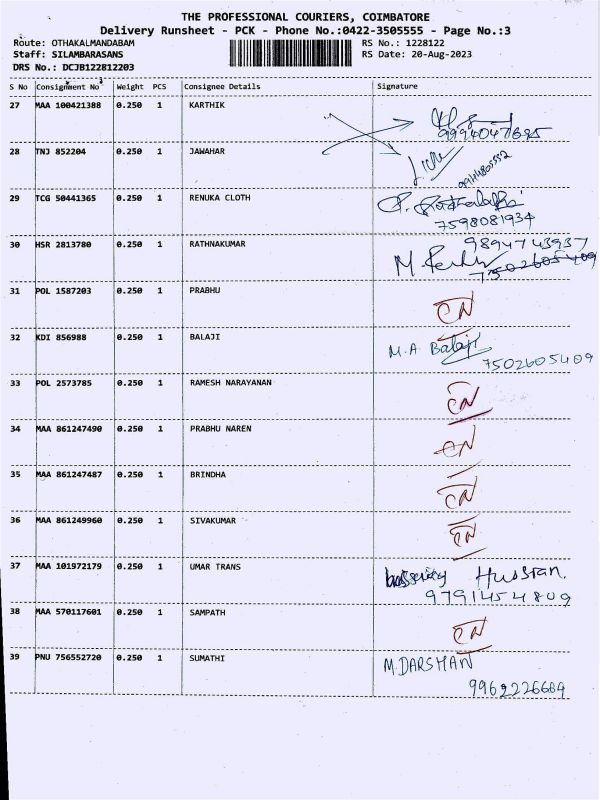 THE PROFESSIONAL COURIERS, COIMBATORE
Delivery Runsheet - PCK - Phone No.:0422-3505555 - Page No.:3
Route: OTHAKALMANDABAM RS No.: 1228122
Staff: SILAMBARASANS RS Date: 20-Aug-2023
DRS No.: DCJB122812203
S No Consignment No Weight PCS Consignee Details Signature
27 MAA 100421388 0.250 1 KARTHIK
9994047695
28 TNJ 852204 0.250 1 JAWAHAR
29 TCG 50441365 0.250 1 RENUKA CLOTH
7598081934
30 HSR 2813780 0.250 1 RATHNAKUMAR 9894743937
M 7502605409
31 POL 1587203 0.250 1 PRABHU
32 KDI 856988 0.250 1 BALAJI M.A Balaji
7502605409
33 POL 2573785 0.250 1 RAMESH NARAYANAN
34 MAA 861247490 0.250 1 PRABHU NAREN
35 MAA 861247487 0.250 1 BRINDHA
36 MAA 861249960 0.250 1 SIVAKUMAR
37 MAA 101972179 0.250 1 UMAR TRANS
9791454809
38 MAA 570117601 0.250 1 SAMPATH
39 PNU 756552720 0.250 1 SUMATHI M.DARSHAN
9962226684